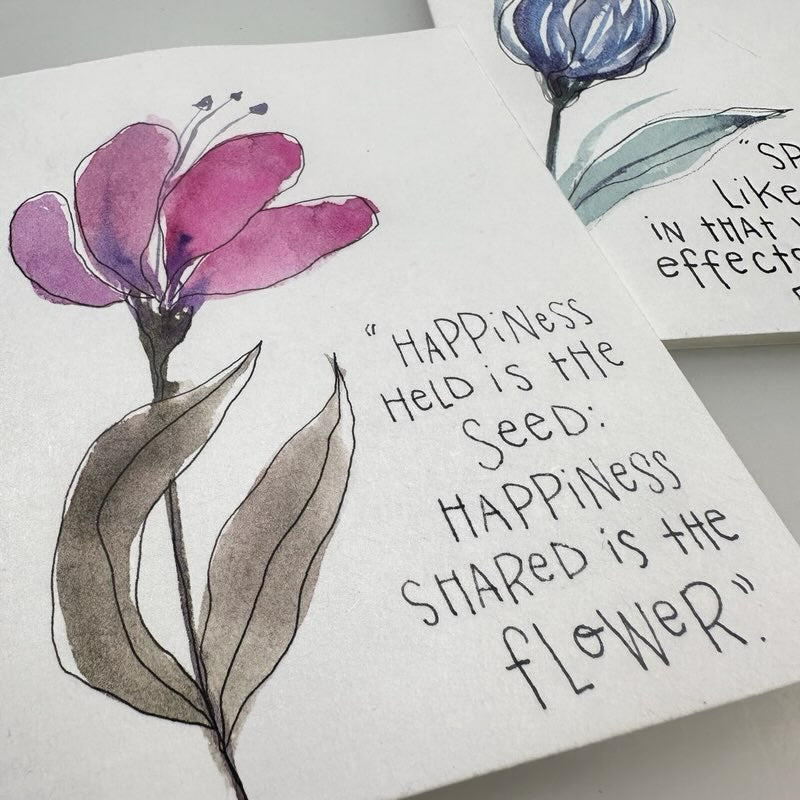 “HAPPiNess
HeLD is tHe
SeeD:
HAPPiNess
SHAReD is tHe
fLoWeR”.
“SP
Like
iN tHAt
effects